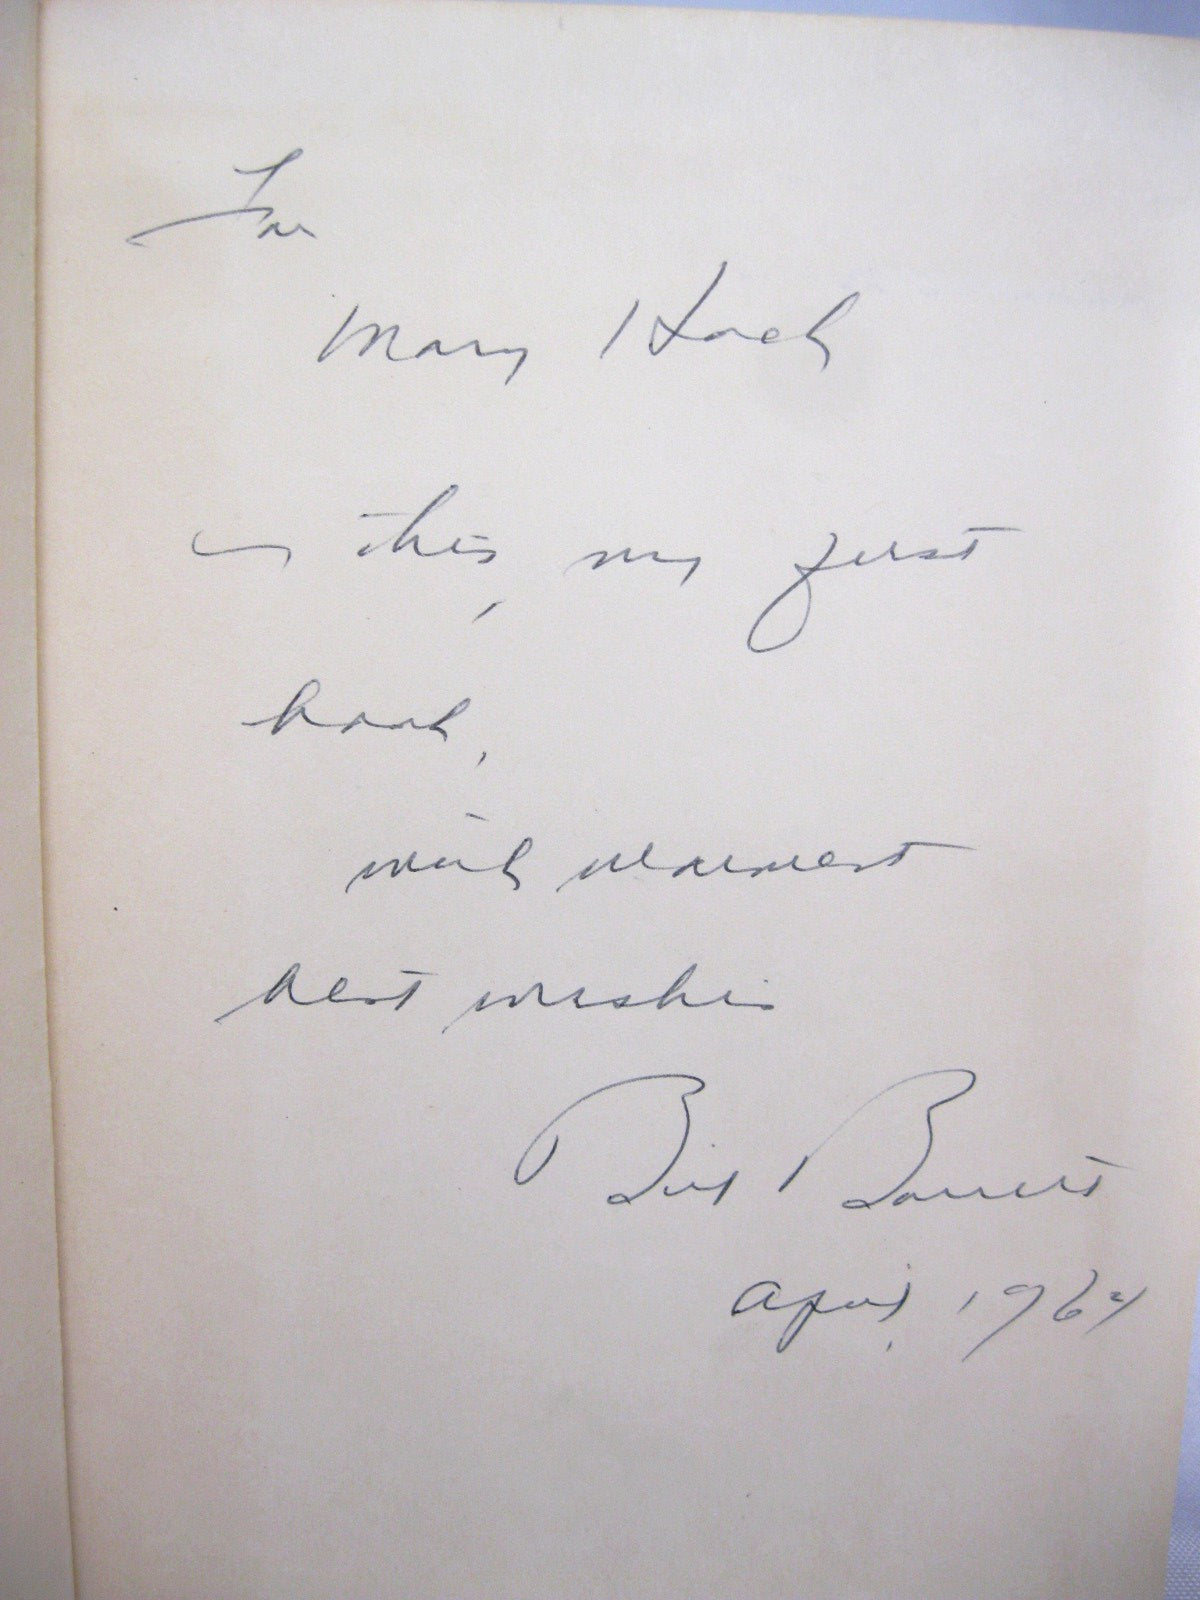 For
Mary Hoch
in this, my first
book,
with warmest
best wishes
Bill Barrett
April, 1964